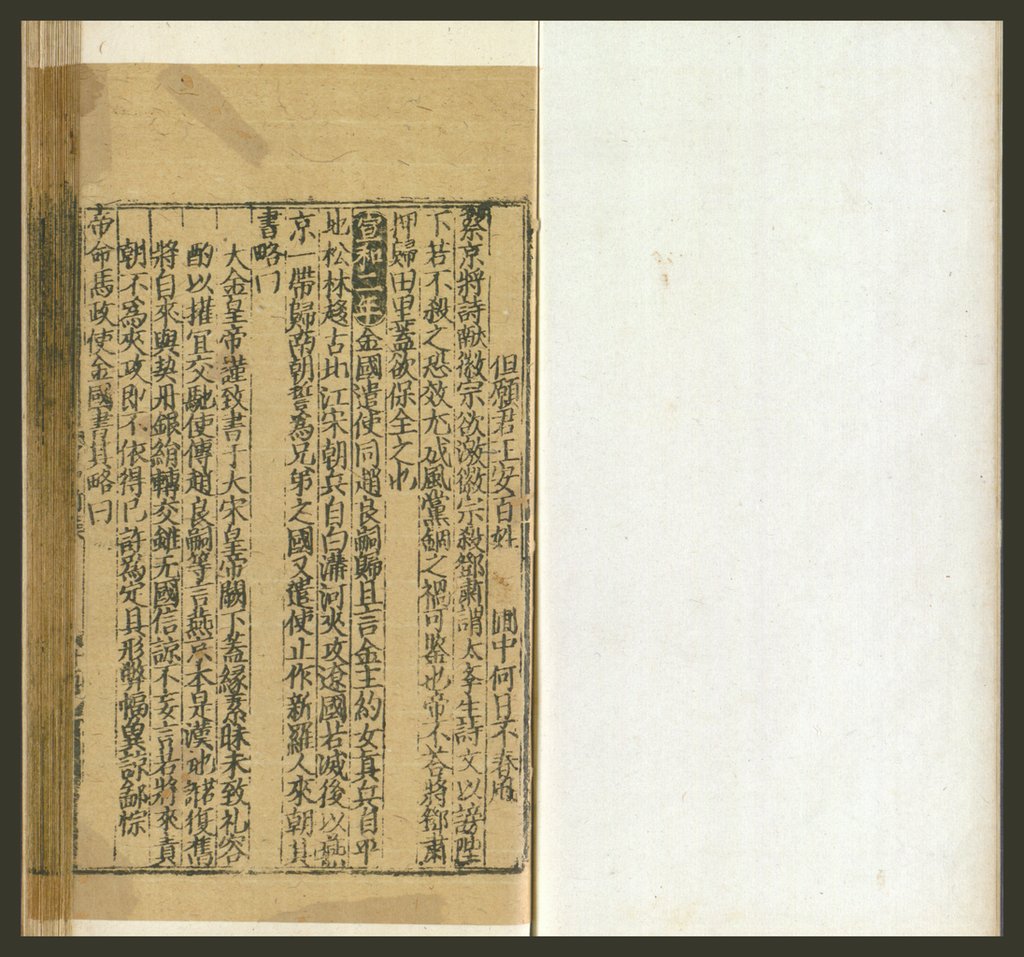 但願君王安百姓　囿中何日不春風
蔡京將詩献徽宗欲激徽宗殺鄧肅謂太孛生詩文以謗陛
下若不殺之恐效尤成風黨錮之禍可鑒也帝不荅將鄧肅
押歸田里蓋欲保全之也
宣和二年金國遣使同趙良嗣歸且言金主約女真兵自平
地松林趍古北江宋朝兵自白溝河夾攻遼國若滅後以燕
京一帶歸南朝誓爲兄弟之國又遣使止作新羅人來朝其
書略曰
大金皇帝謹致書于大宋皇帝闕下蓋緣素昧未致礼容
酌以摧宜交馳使傳趙良嗣等言燕京本是漢地諾復舊
將自來與契丹銀絹轉交雖无國信諒不妄言若將來責
朝不爲夾攻即不依得已許爲定具形弊幅冀諒鄙悰
帝命馬政使金國書其略曰